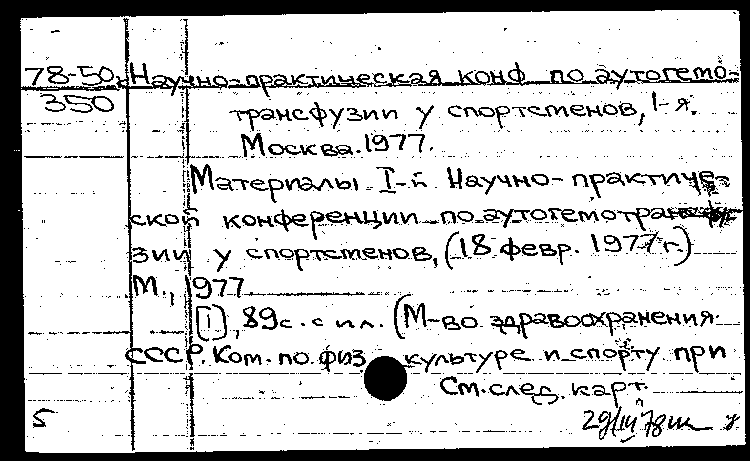 78-50. Научно-практическая конф по аутогемо-
350
трансфузии у спортсменов, 1-я.
Москва. 1977.
Материалы I-й Научно-практиче-
ской конференции по аутогемотрансфу-
зии у спортсменов, (18 февр. 1977 г.)
М., 1977.
[1], 89с. с ил. (М-во здравоохранения
СССР. Ком. по физ культуре и спорту при
См. след. карт.
5